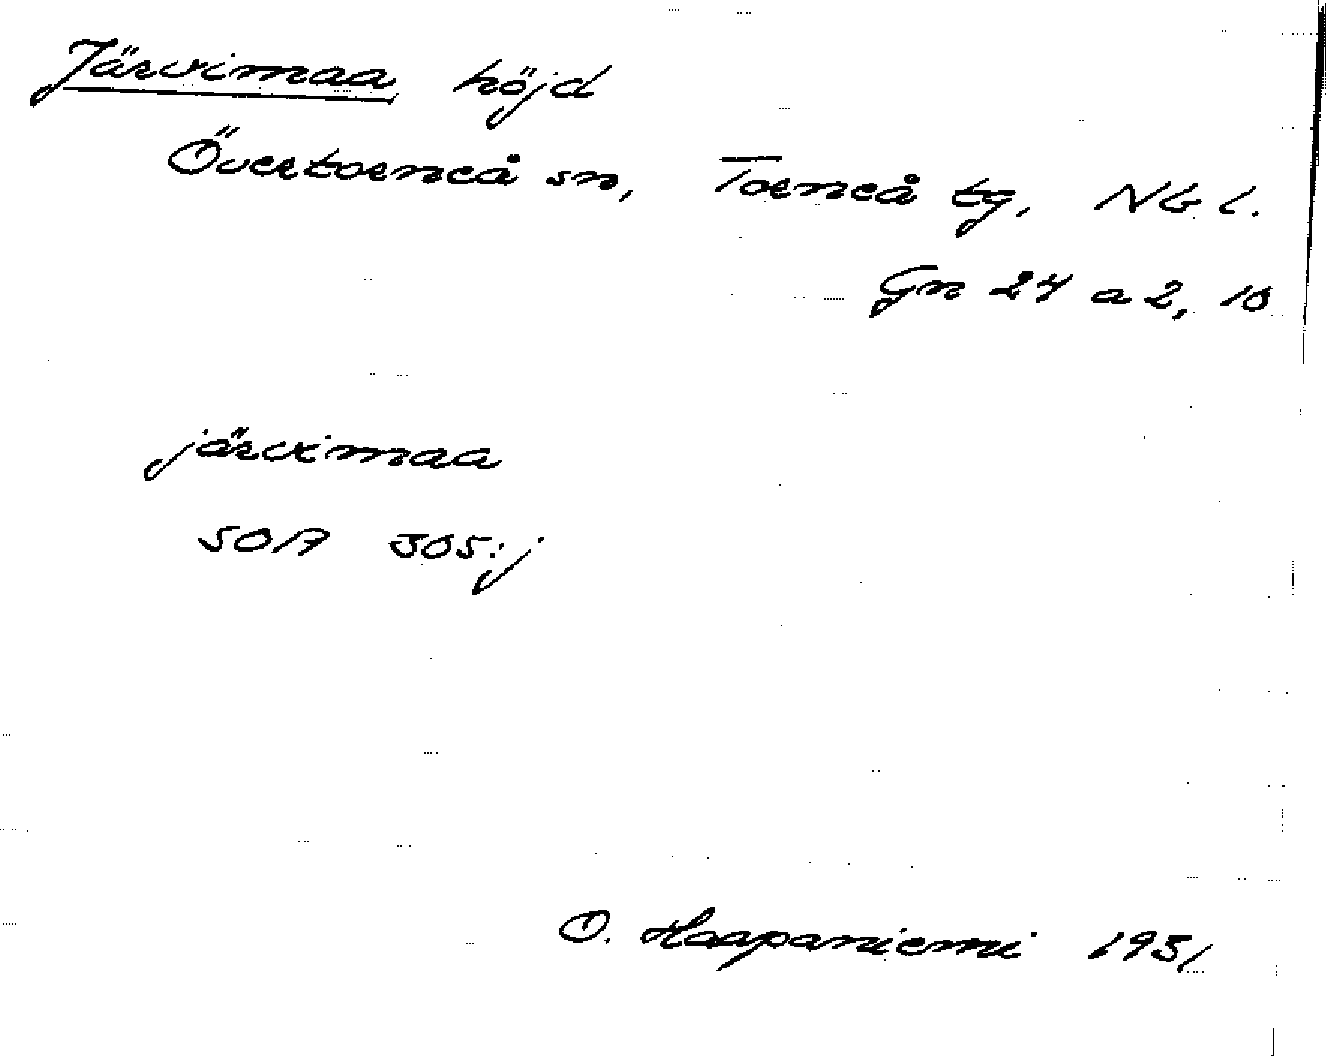 Järvimaa höjd
Övertorneå sn, Torneå tg, Nb l.
Gn 24 a 2, 10
järvimaa
SOA 305:j
O. Haapaniemi 1951